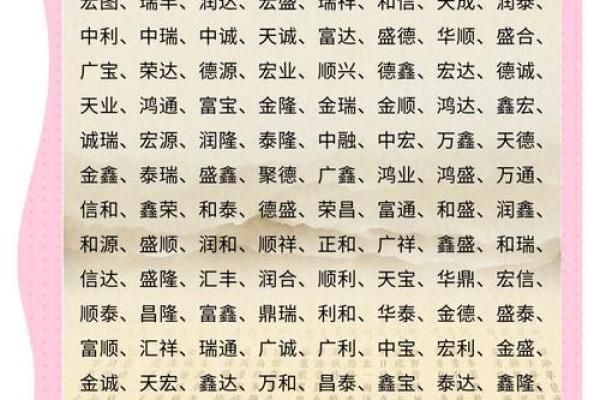 宏图、瑞丰、润达、宏盛、瑞祥、和信、天成、润泰、
中利、中瑞、中诚、天诚、富达、盛德、华顺、盛合、
广宝、荣达、德源、宏业、顺兴、德鑫、宏达、德诚、
天业、鸿通、富宝、金隆、金瑞、金顺、鸿达、鑫宏、
诚瑞、宏源、润隆、泰隆、中融、中宏、万鑫、天德、
金鑫、泰瑞、盛鑫、聚德、广鑫、鸿业、鸿盛、万通、
信和、鑫荣、和泰、德盛、荣昌、富通、和盛、润鑫、
和源、盛顺、润和、顺祥、正和、广祥、鑫盛、和瑞、
信达、盛隆、汇丰、润合、顺利、天宝、华鼎、宏信、
顺泰、昌隆、富鑫、鼎瑞、利和、华泰、金德、盛泰、
富顺、汇祥、瑞通、广诚、广利、中宝、宏利、金盛、
金诚、天宏、鑫达、万和、昌泰、鑫宝、泰达、鑫隆、